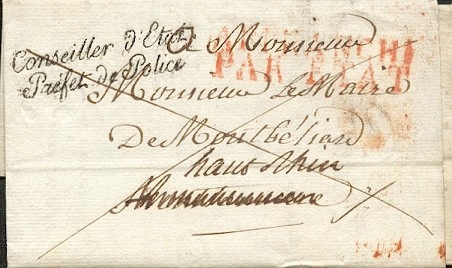 Conseiller d'Etat
Préfet de Police
A Monsieur
PAR ETAT
Monsieur Le Maire
De Montbéliard
haut Rhin